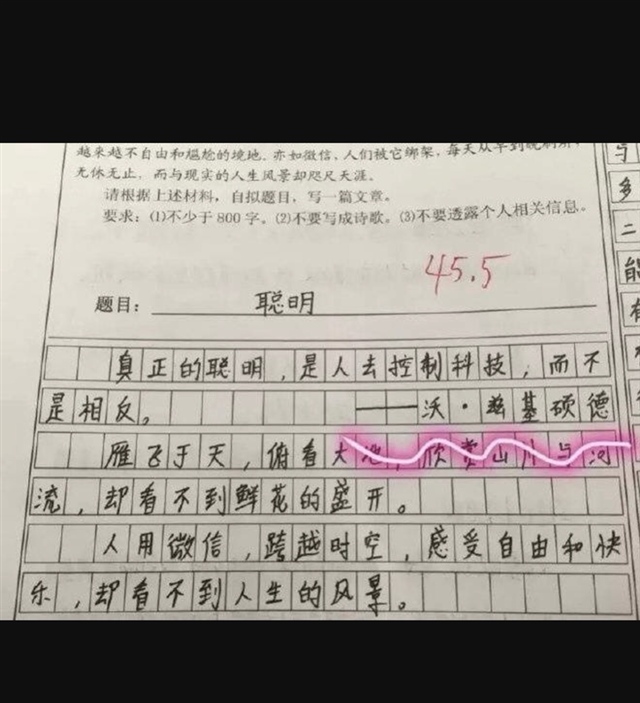 越来越不自由和尴尬的境地。亦如微信，人们被它绑架，每天从早到晚刷屏，
无休无止，而与现实的人生风景却咫尺天涯。
请根据上述材料，自拟题目，写一篇文章。
要求：(1)不少于800字。(2)不要写成诗歌。(3)不要透露个人相关信息。
45.5
题目：聪明
真正的聪明，是人去控制科技，而不
是相反。 ——沃·兹基硕德
雁飞于天，俯看大地，欣赏山川与河
流，却看不到鲜花的盛开。
人用微信，跨越时空，感受自由和快
乐，却看不到人生的风景。
与
多
二
能
有